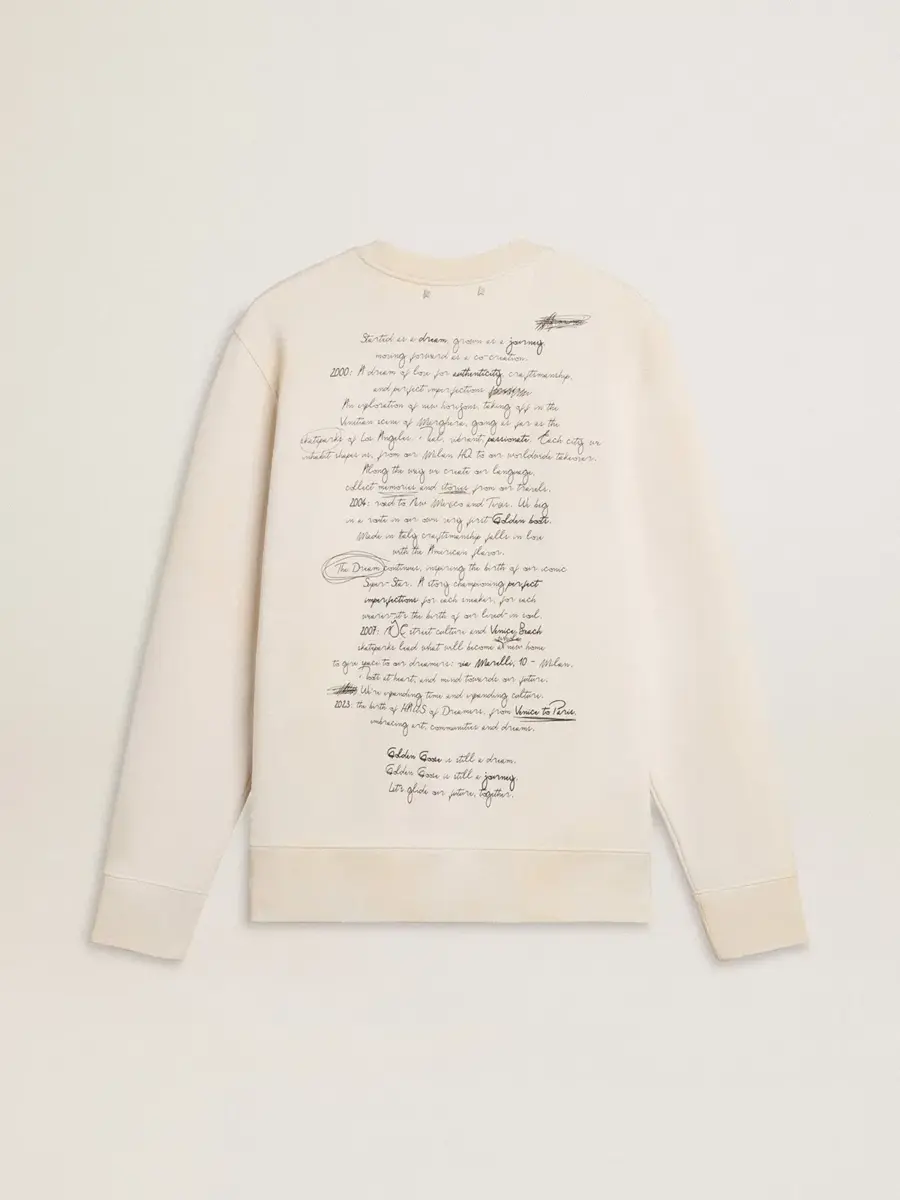 Started as a dream, grown as a journey,
moving forward as a co-creation.
2000: A dream of love for authenticity, craftsmanship,
and perfect imperfections
An exploration of new horizons, taking off in the
Venetian scene of Marghera, going as far as the
skateparks of Los Angeles. Real, vibrant, passionate. Each city we
inhabit shapes us, from our Milan HQ to our worldwide takeover.
Along the way we create our language,
collect memories and stories from our travels.
2004: road to New Mexico and Texas. We big
in a route in our own very first Golden boots.
Made in Italy craftsmanship falls in love
with the American flavor.
The Dream continues, inspiring the birth of our iconic
Super-Star. A story championing perfect
imperfections for each sneaker, for each
wearer: it's the birth of our lived-in soul.
2007: street culture and Venice Beach
skateparks lead what will become a whole new home
to give space to our dreamers: via Morelli, 10 - Milan.
Roots at heart, and mind towards our future.
We're expanding time and expanding culture.
2023: the birth of HAUS of Dreamers, from Venice to Paris.
embracing art, communities and dreams.
Golden Goose is still a dream.
Golden Goose is still a journey.
Let's glide our future, together.